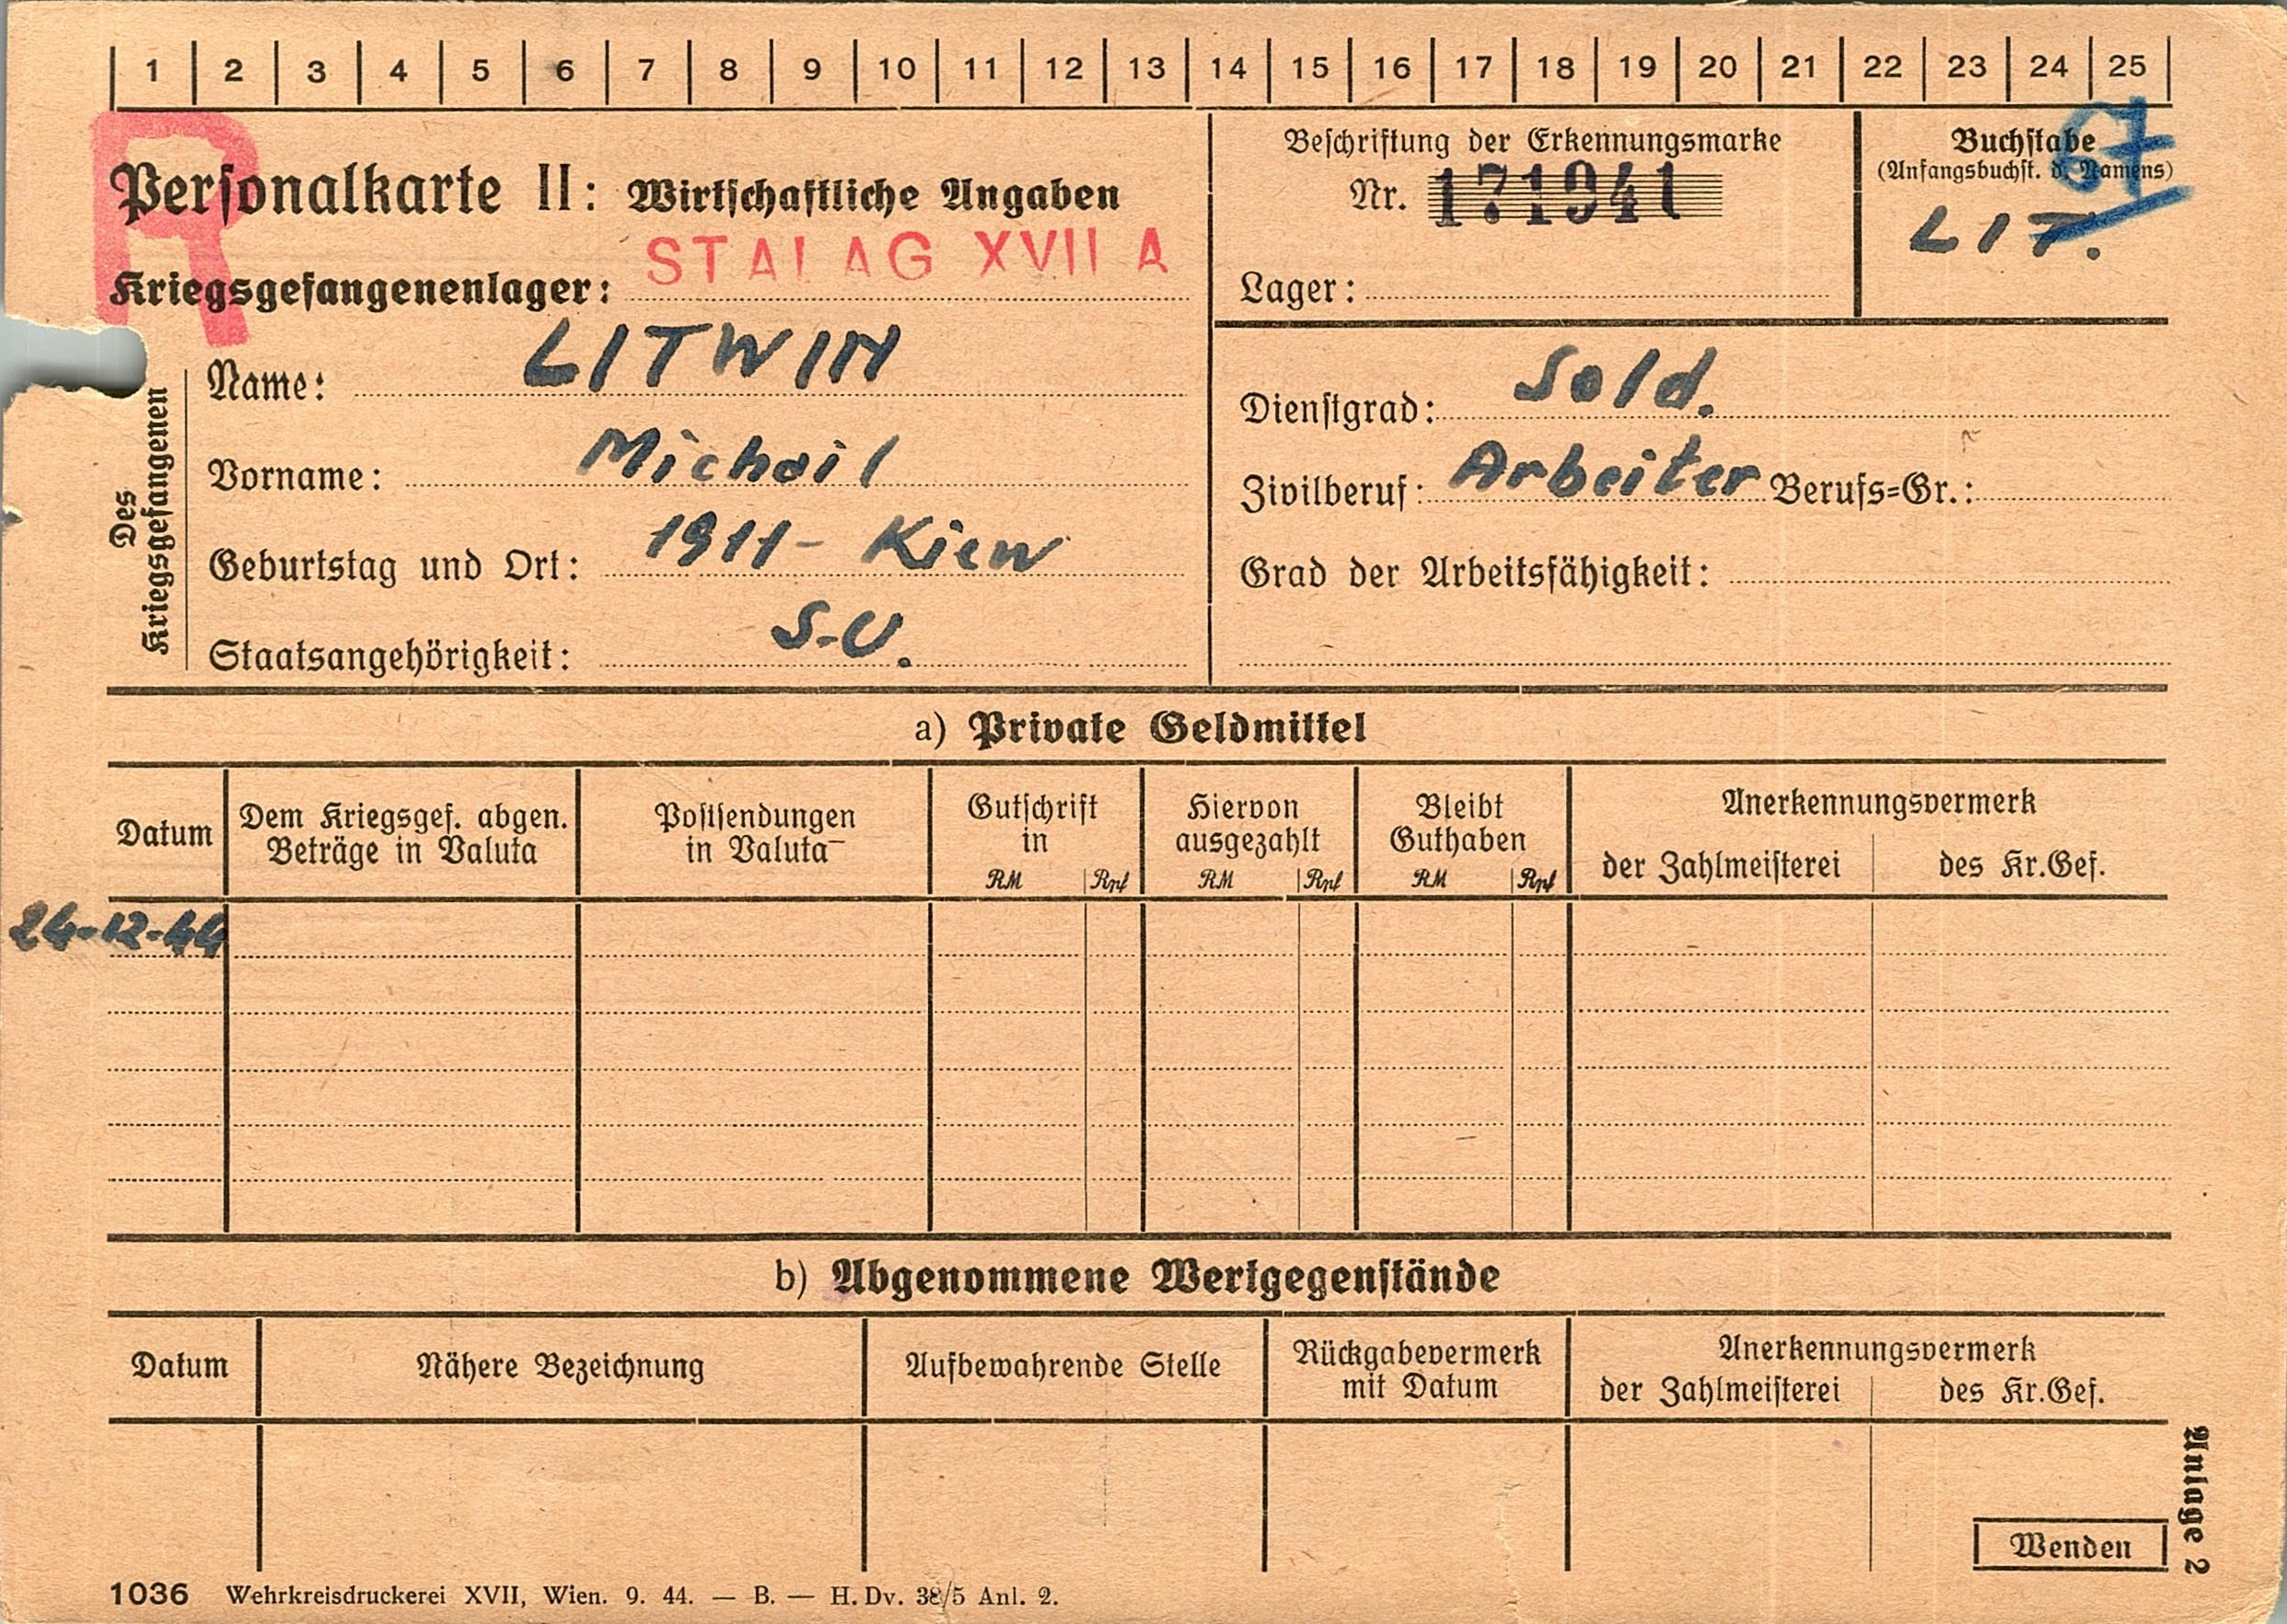 1 2 3 4 5 6 7 8 9 10 11 12 13 14 15 16 17 18 19 20 21 22 23 24 25
R
Personalkarte II: Wirtschaftliche Angaben
STALAG XVII A
Kriegsgefangenenlager:
Beschriftung der Erkennungsmarke
Nr. 171941
Lager:
Buchstabe
(Anfangsbuchst. d. Namens)
LIT.
Des Kriegsgefangenen
Name: LITWIN
Vorname: Michail
Geburtstag und Ort: 1911 - Kiew
Staatsangehörigkeit: S.U.
Dienstgrad: Sold.
Zivilberuf: Arbeiter Berufs=Gr.:
Grad der Arbeitsfähigkeit:
a) Private Geldmittel
Datum
Dem Kriegsgef. abgen.
Beträge in Valuta
Postsendungen
in Valuta
Gutschrift
in
RM Rpf
Hiervon
ausgezahlt
RM Rpf
Bleibt
Guthaben
RM Rpf
Anerkennungsvermerk
der Zahlmeisterei
des Kr.Gef.
24-12-44
b) Abgenommene Wertgegenstände
Datum
Nähere Bezeichnung
Aufbewahrende Stelle
Rückgabevermerk
mit Datum
Anerkennungsvermerk
der Zahlmeisterei
des Kr.Gef.
Anlage 2
Wenden
1036 Wehrkreisdruckerei XVII, Wien. 9. 44. — B. — H. Dv. 38/5 Anl. 2.